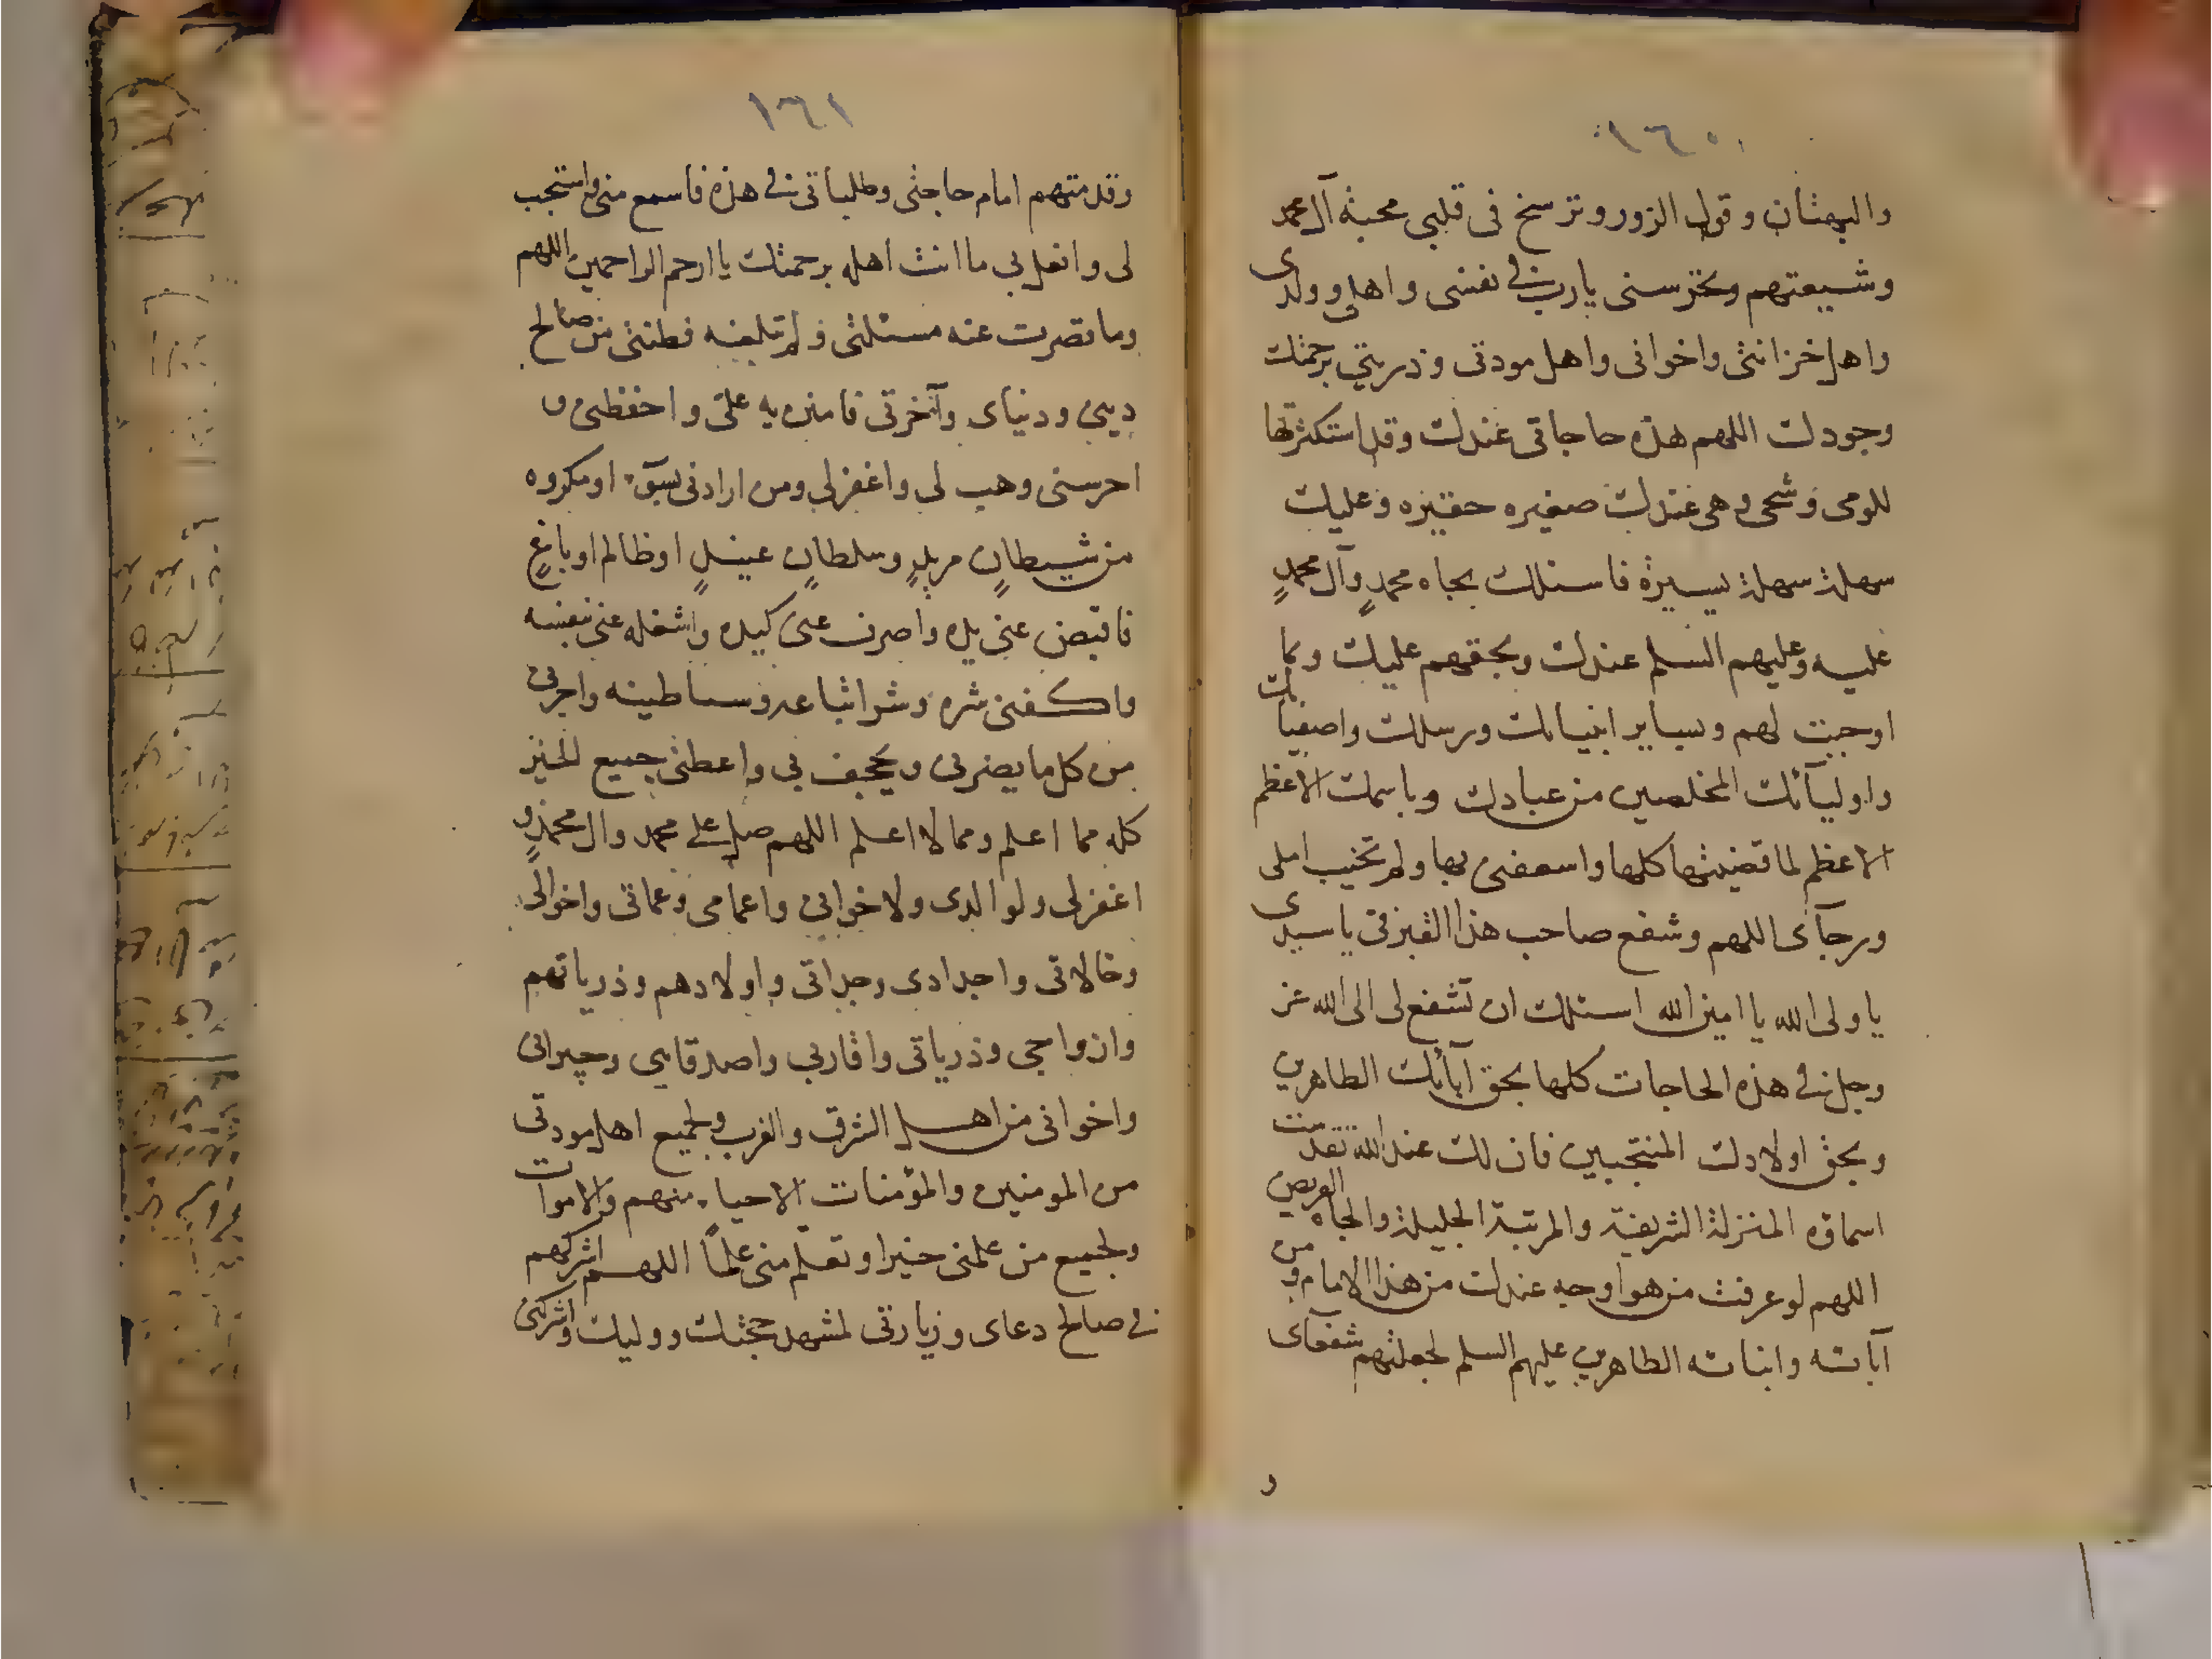 ١٦٠
والبهتان وقول الزور وترسخ فى قلبى محبة آل محمد
وشيعتهم وتحرسنى يا رب فى نفسى واهلى وولدى
واهل خزانتى واخوانى واهل مودتى وذريتى برحمتك
وجودك اللهم هذه حاجاتى عندك وقد استكثرتها
للومى وشحى وهى عندك صغيره حقيره وعليك
سهلة سهلة يسيرة فاسئلك بجاه محمدٍ وآل محمدٍ
عليه وعليهم السلم عندك وبحقهم عليك وبما
اوجبت لهم وبساير انبيائك ورسلك واصفيائك
واوليآئك المخلصين من عبادك وباسمك الاعظم
الاعظم لما قضيتها كلها واسعفنى بها ولم تخيب املى
ورجآى اللهم وشفع صاحب هذا القبر فى يا سيدى
يا ولى الله يا امين الله اسئلك ان تشفع لى الى الله عز
وجل فى هذه الحاجات كلها بحق آبائك الطاهرين
وبحق اولادك المنتجبين فان لك عند الله تقدست
اسماؤه المنزلة الشريفة والمرتبة الجليلة والجاه العريض
اللهم لو عرفت من هو اوجه عندك من هذا الامام ومن
آبائه وابنائه الطاهرين عليهم السلم لجعلتهم شفعآى
و
١٦١
وقدمتهم امام حاجتى وطلباتى فى هذه فاسمع منى واستجب
لى وافعل بى ما انت اهله برحمتك يا ارحم الراحمين اللهم
وما قصرت عنه مسئلتى ولم تبلغه فطنتى من صالح
دينى ودنياى وآخرتى فامنن به على واحفظنى و
احرسنى وهب لى واغفرلى ومن ارادنى بسوٓء او مكروه
من شيطانٍ مريدٍ وسلطانٍ عنيدٍ او ظالم او باغٍ
فاقبض عنى يده واصرف عنى كيده واشغله عنى بنفسه
واكفنى شره وشر اتباعه وشياطينه واجرنى
من كل ما يضرنى ويجحف بى واعطنى جميع الخير
كله مما اعلم ومما لا اعلم اللهم صل على محمد وال محمدٍ و
اغفرلى ولوالدى ولاخوانى واعمامى وعماتى واخوالى
وخالاتى واجدادى وجداتى واولادهم وذرياتهم
وازواجى وذرياتى واقاربى واصدقايى وجيرانى
واخوانى من اهل الشرق والغرب ولجميع اهل مودتى
من المومنين والمؤمنات الاحياء منهم والاموات
ولجميع من علمنى خيرا او تعلم منى علماً اللهم اشركهم
فى صالح دعاى وزيارتى لمشهد حجتك ووليك واشركنى